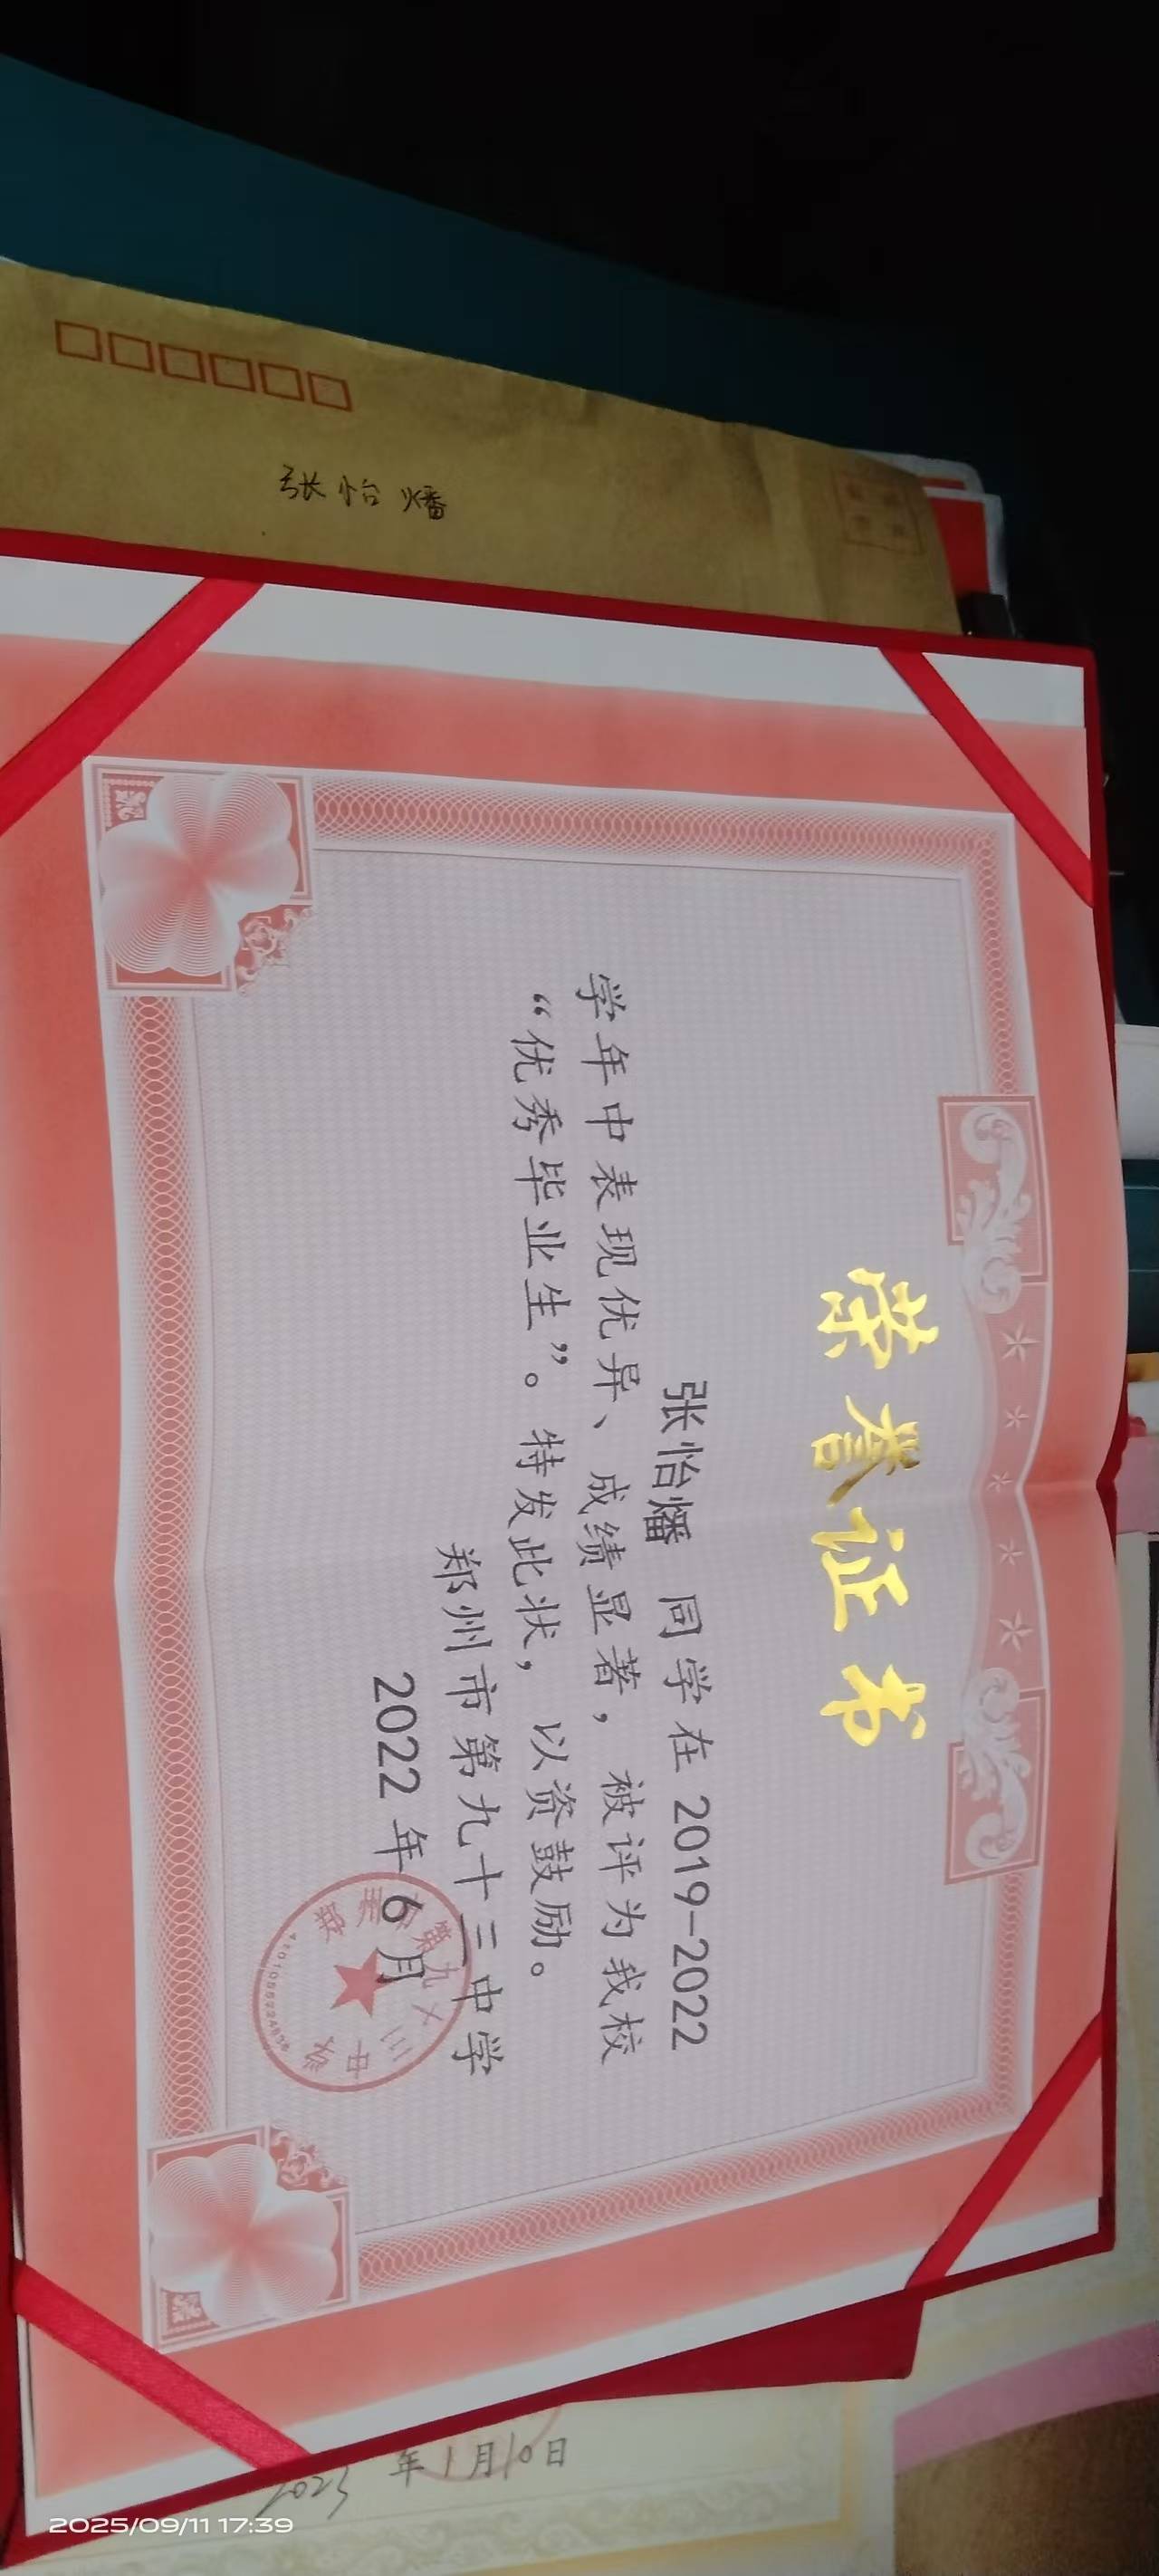 张怡燔
荣誉证书
张怡燔 同学在 2019-2022
学年中表现优异、成绩显著，被评为我校
“优秀毕业生”。特发此状，以资鼓励。
郑州市第九十三中学
2022年6月
郑州市第九十三中学
2023 年1月10日
2025/09/11 17:39